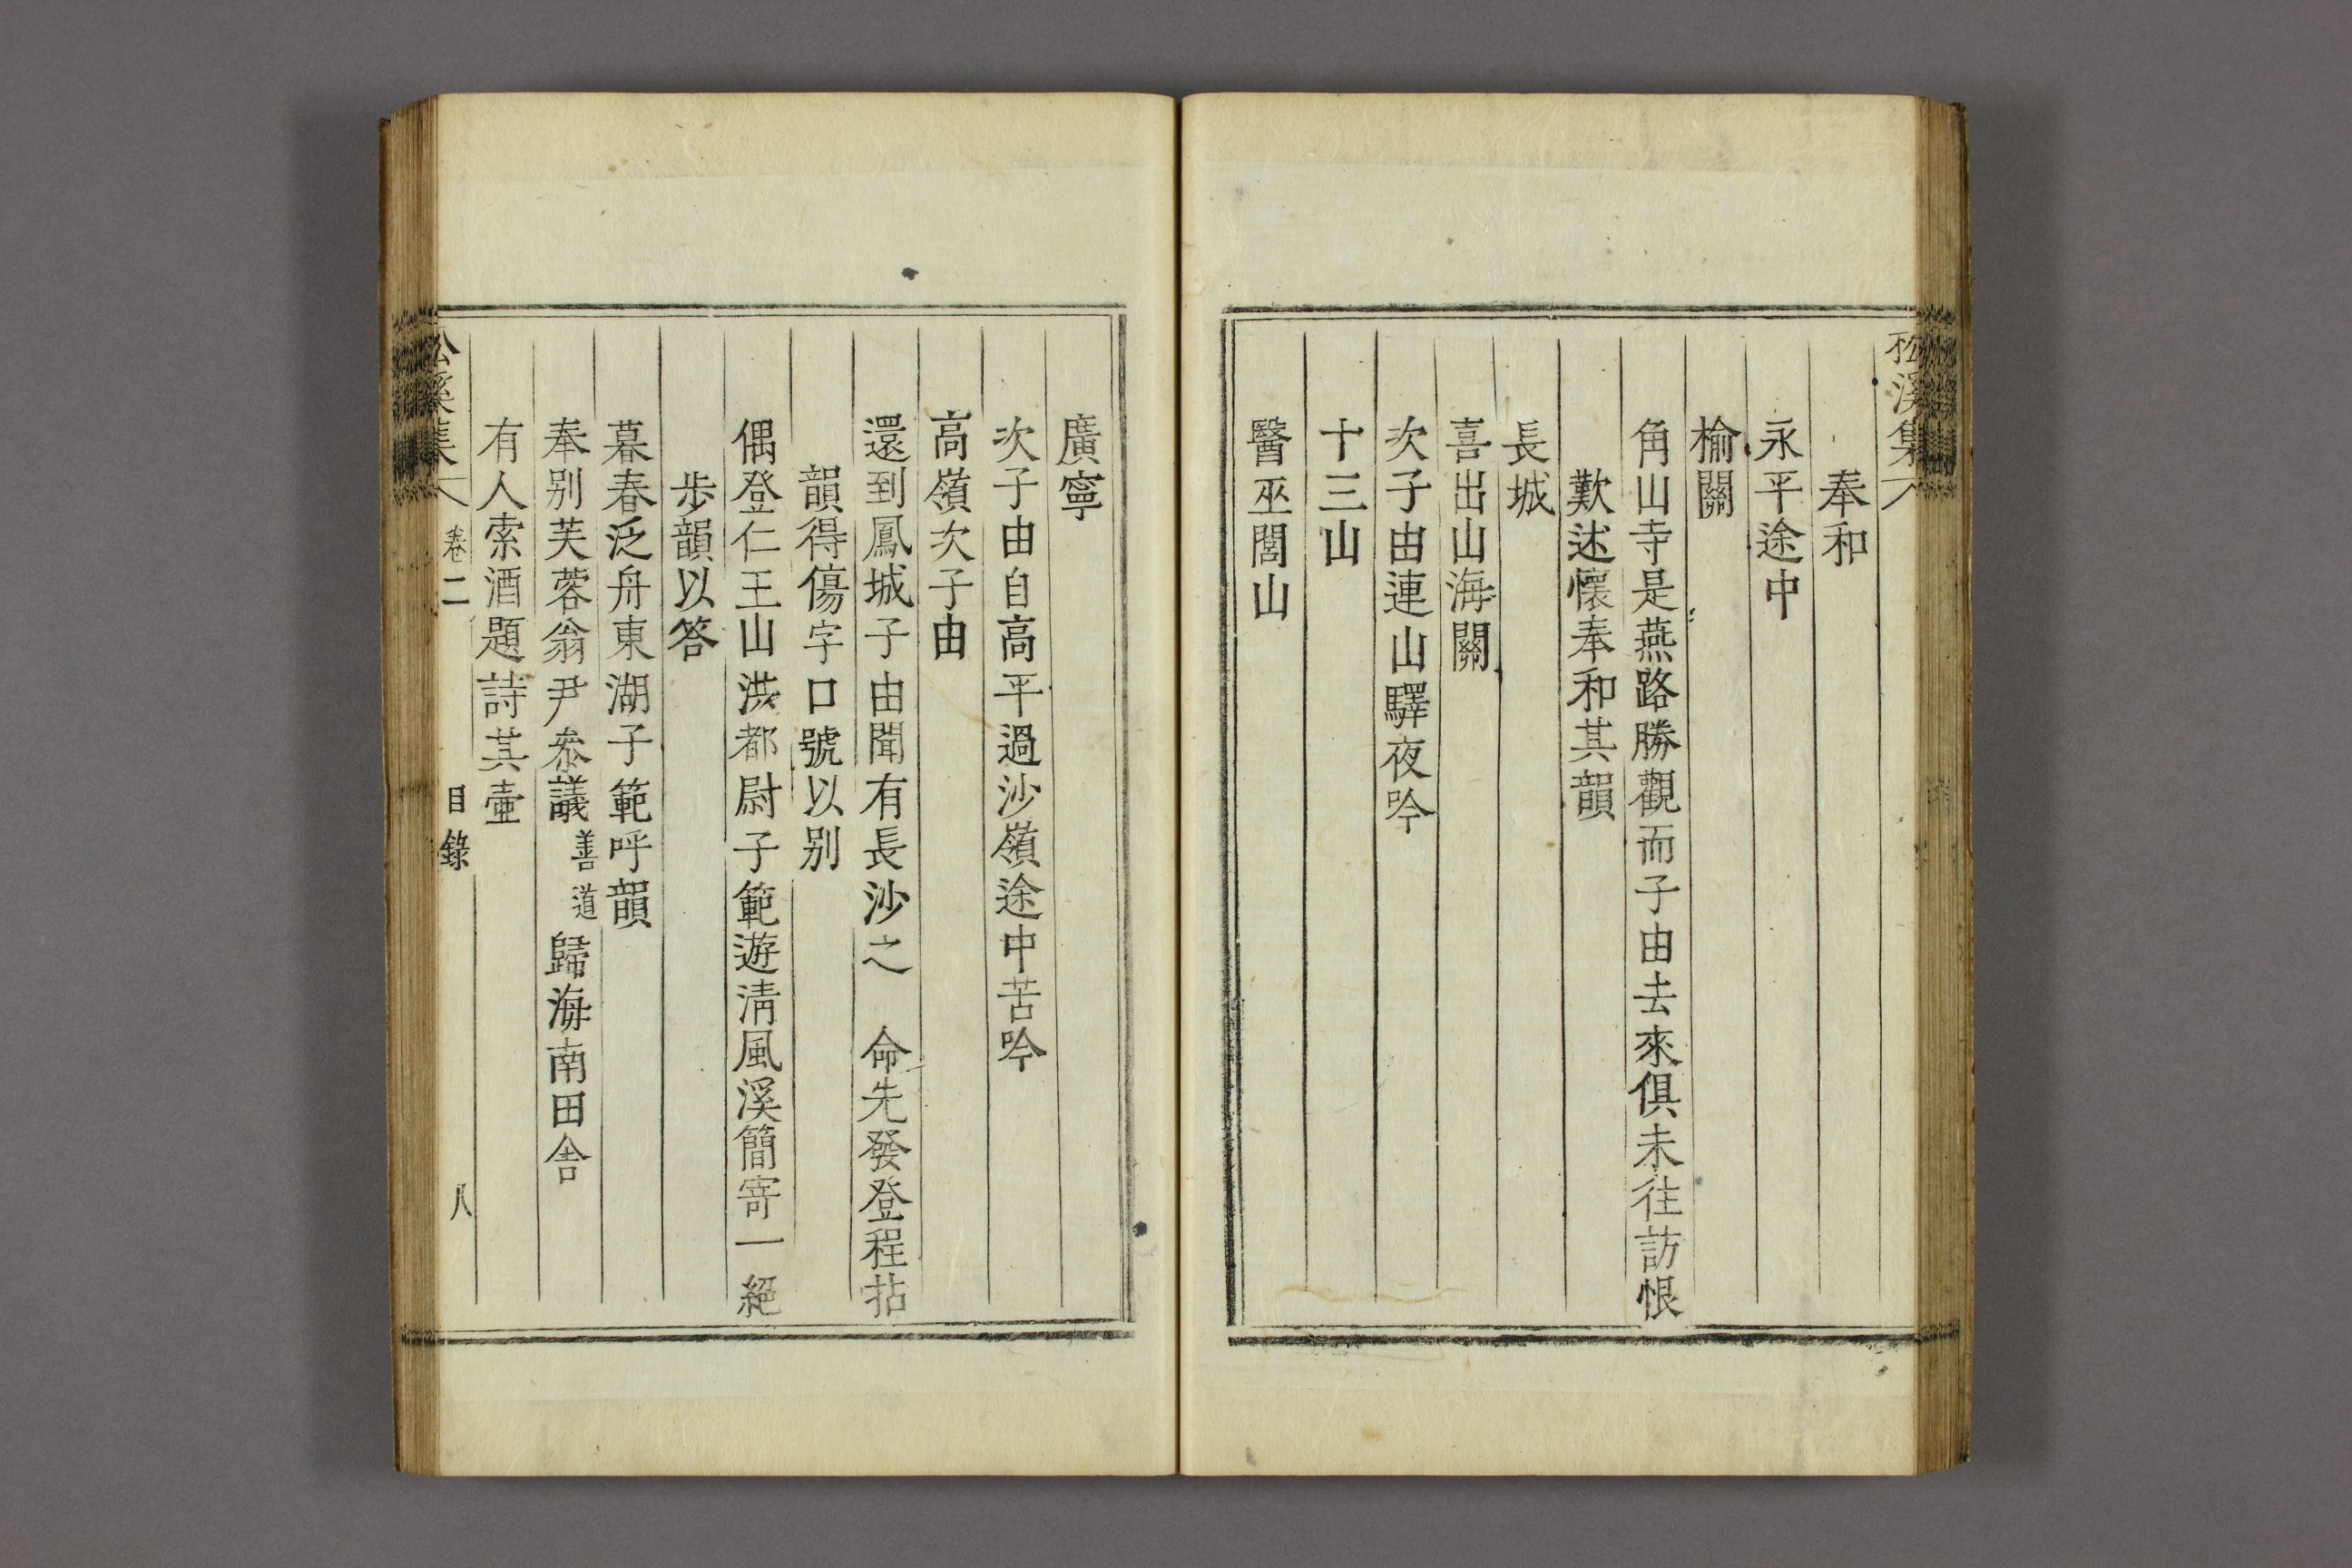 松溪集
奉和
永平途中
榆關
角山寺是燕路勝觀而子由去來俱未往訪恨
歎述懷奉和其韻
長城
喜出山海關
次子由連山驛夜吟
十三山
醫巫閭山
廣寧
次子由自高平過沙嶺途中苦吟
高嶺次子由
還到鳳城子由聞有長沙之 命先發登程拈
韻得傷字口號以别
偶登仁王山洪都尉子範遊淸風溪簡寄一絕
步韻以答
暮春泛舟東湖子範呼韻
奉别芙蓉翁尹叅議善道歸海南田舍
有人索酒題詩其壷
松溪集 卷二 目錄 八